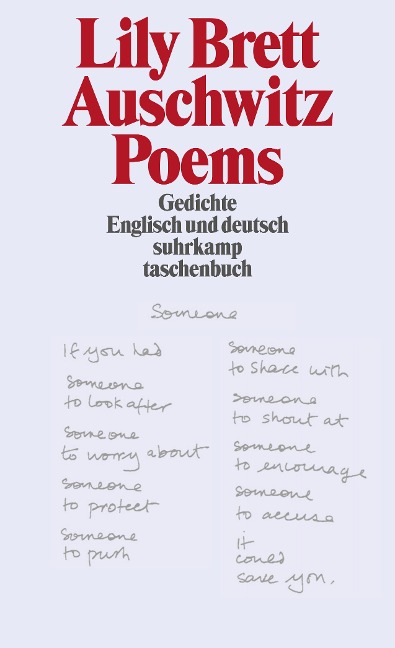 Lily Brett
Auschwitz
Poems
Gedichte
Englisch und deutsch
suhrkamp
taschenbuch
Someone
If you had
Someone
to look after
Someone
to worry about
Someone
to protect
Someone
to push
Someone
to share with
Someone
to shout at
Someone
to encourage
Someone
to accuse
it
could
save you.